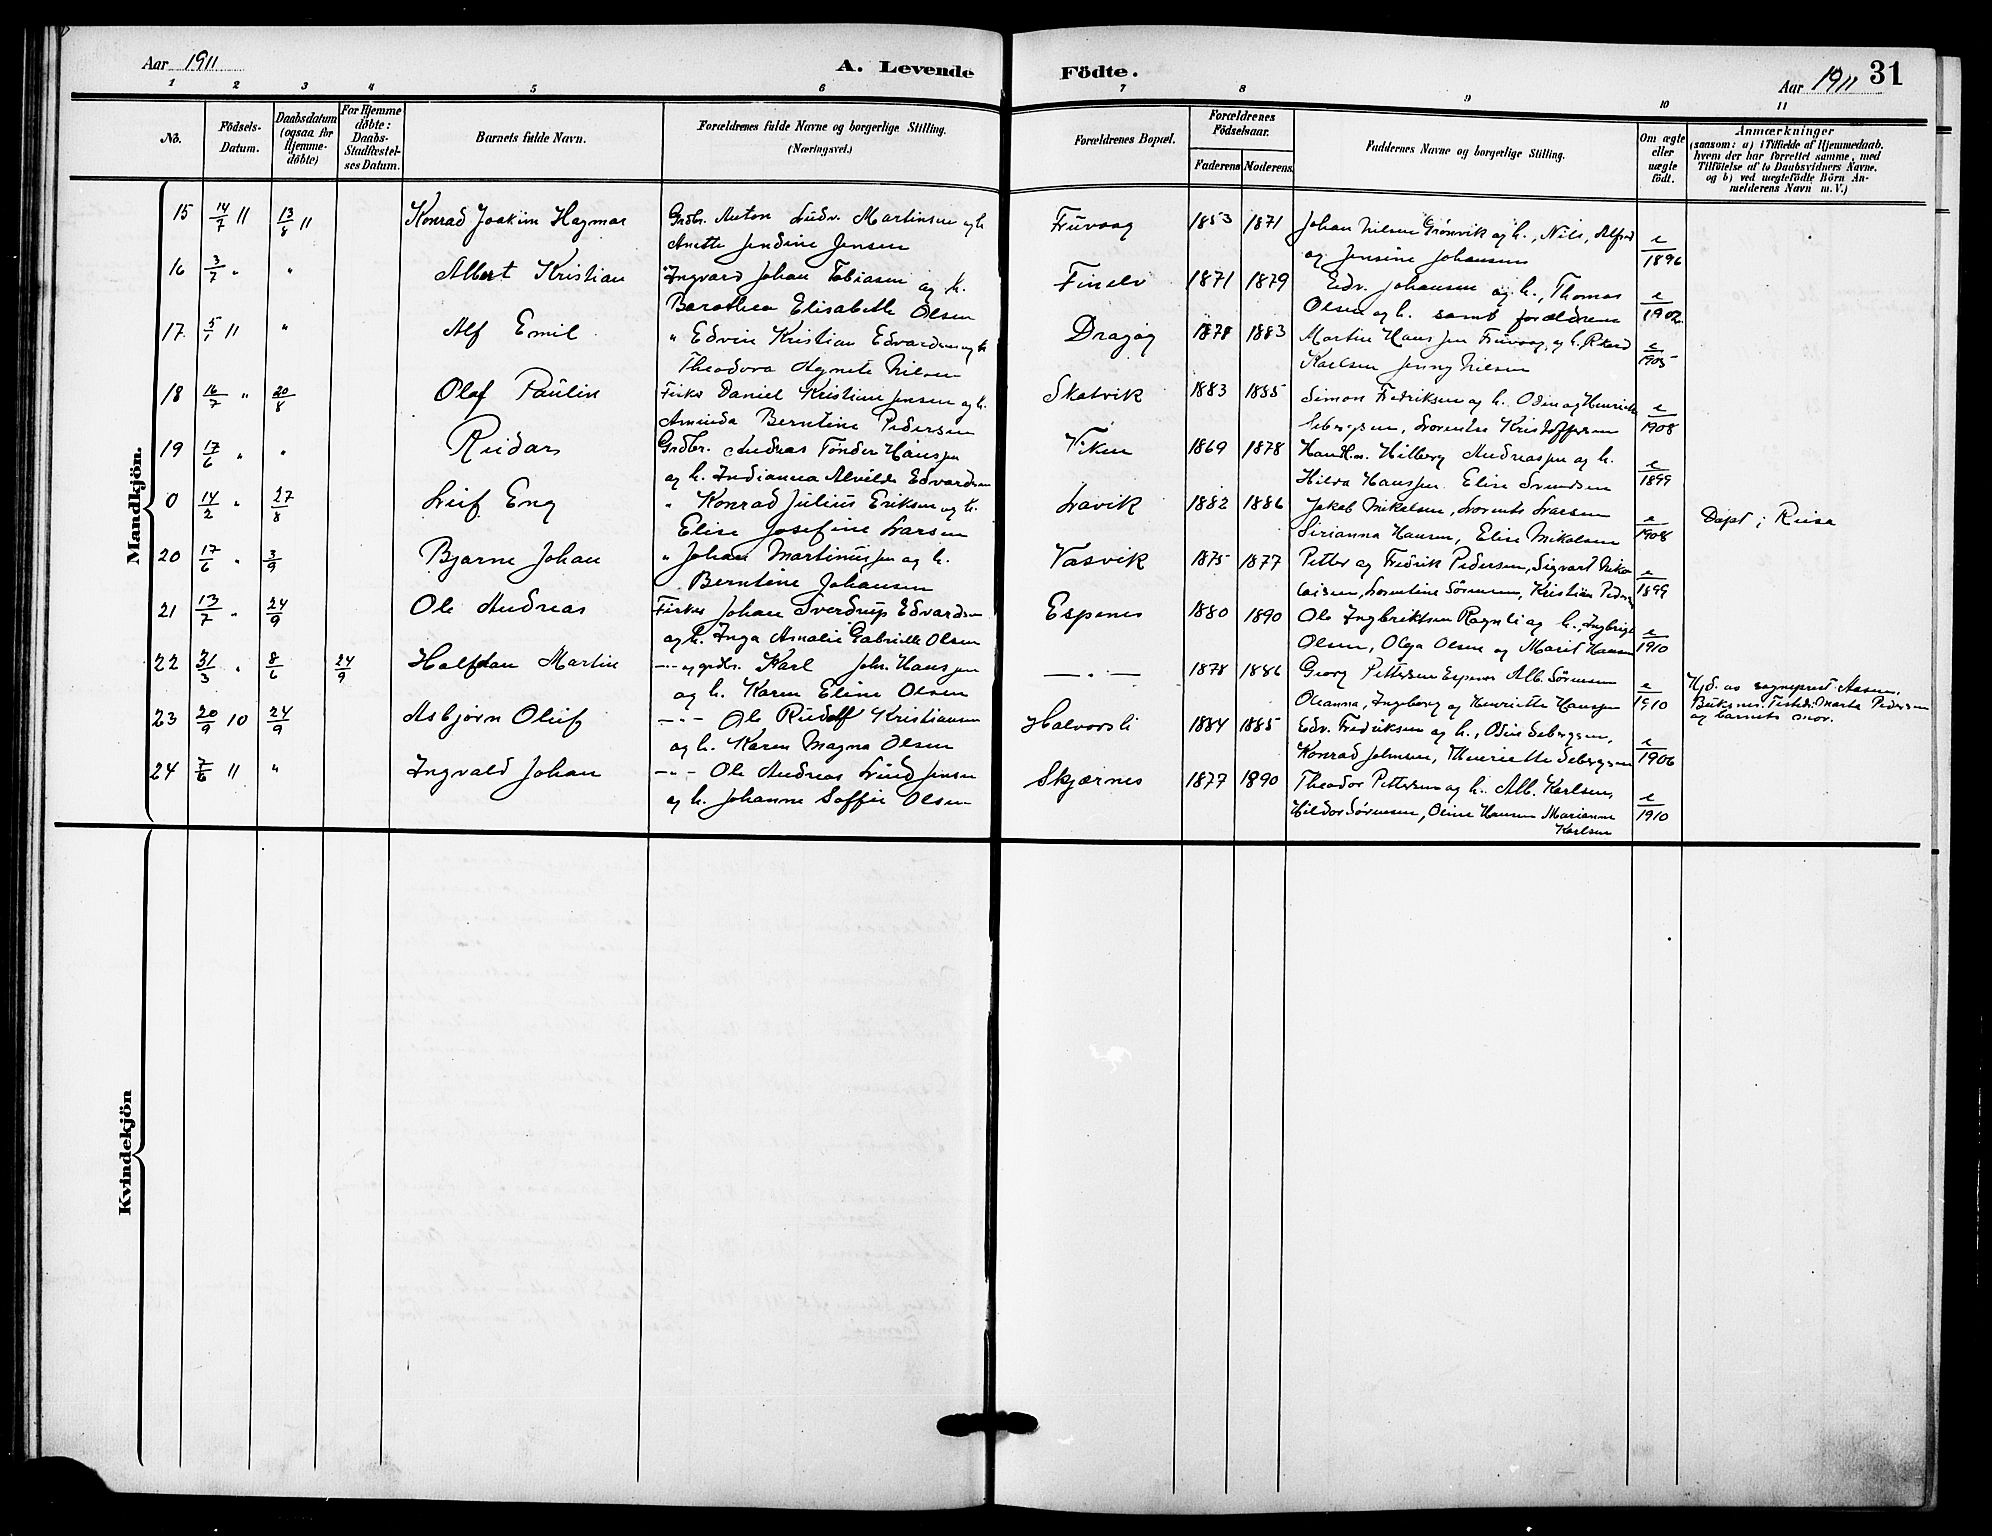 Aar 1911
A. Levende Födte.
Aar 1911
31
1 2 3 4 5 6 7 8 9 10 11
No.
Födsels-Datum.
Daabsdatum (ogsaa för Hjemmedöbte)
For Hjemmedöbte: Daabs-Stadfæstelses Datum.
Barnets fulde Navn.
Forældrenes fulde Navne og borgerlige Stilling. (Næringsvei.)
Forældrenes Bopæl.
Forældrenes Födselsaar.
Faderens Moderens
Faddernes Navne og borgerlige Stilling.
Om ægte eller uægte födt.
Anmærkninger
(saasom: a) i Tilfælde af Hjemmedaab,
hvem der har forrettet samme, med
Tilföielse af to Daabsvidners Navne,
og b) ved uægtefödte Börn An-
melderens Navn m. V.)
Mandkjön.
15 14/7 11 13/8 11 Konrad Joakim Hagmar Grdbr. Anton Ludv. Martinsen og h. Fürvaag 1853 1871 Johan Nilsen Grønvik og h., Nils, Alfred e/1896
Anette Jendine Jensen og Jensine Johansen
16 3/7 " " Albert Kristian " Ingvard Johan Tobiasen og h. Finelv 1871 1879 Edv. Johansen og h., Thomas e/1902
Barothea Elisabeth Olsen Olsen og h. samt forældrene
17 5/1 11 " Alf Emil " Edvin Kristian Edvardsen og h. Dragøy 1878 1883 Martin Hanssen Fürvaag, og h. Rkard e/1905
Theodora Agnete Nilsen Karlsen Jenny Nilsen
18 16/7 " 20/8 Olaf Paulin Fisker Daniel Kristian Jensen og h. Skatvik 1883 1885 Simon Fredriksen og h. Odin og Henriette e/1908
Aminda Berntine Pedersen Sebergsen, Lorentse Kristoffersen
19 17/6 " " Reidar Grdbr. Andreas Tønder Hanssen Viken 1869 1878 Handl.m. Hilberg Andreassen og h. e/1899
og h. Indianna Alvilde Edvardsen Hilda Hanssen Elise Svendsen
0 14/2 " 27/8 Leif Eng " Konrad Julius Eriksen og h. Lavik 1882 1886 Jakob Mikalsen, Lorents Larsen e/1908 Døpt i Reisa
Elise Josefine Larsen Sirianna Hansen, Elise Mikalsen
20 17/6 " 3/9 Bjarne Johan " Johan Martinussen og h. Vasvik 1875 1877 Petter og Fredrik Pedersen, Sigvart Niko e/1899
Berntine Johansen laisen, Lorentine Sørensen, Kristian Pedersen
21 13/7 " 24/9 Ole Andreas Fisker Johan Sverdrup Edvardsen Espenes 1880 1890 Ole Ingbriktsen Ragnli og h., Ingbrigt e/1910
og h. Inga Amalie Gabrielle Olsen Olsen, Olga Olsen og Marit Hansen
22 31/3 " 8/6 24/9 Halfdan Martin — " og grdbr. Karl Joh. Hanssen — " — 1878 1886 Georg Pettersen Espenes Alb. Sørensen e/1910 Hjd. av sogneprest Aasen.
og h. Karen Eline Olsen Oleanna, Ingeborg og Henriette Hanssen Buksnes. Testes: Marta Pedersen
og barnets mor.
23 20/9 10 24/9 Asbjørn Oluf — " — Ole Rudolf Kristiansen Halvorsli 1884 1885 Edv. Fredriksen og h., Odin Sebergsen, e/1906
og h. Karen Magna Olsen Konrad Johnsen, Henriette Sebergsen
24 7/6 11 " Ingvald Johan — " — Ole Andreas Lind Jensen Skjærnes 1877 1890 Theodor Pettersen og h. Alb. Karlsen, e/1910
og h. Johanne Soffie Olsen Hildor Sørensen, Oline Hansen Marianne
Karlsen
Kvindekjön